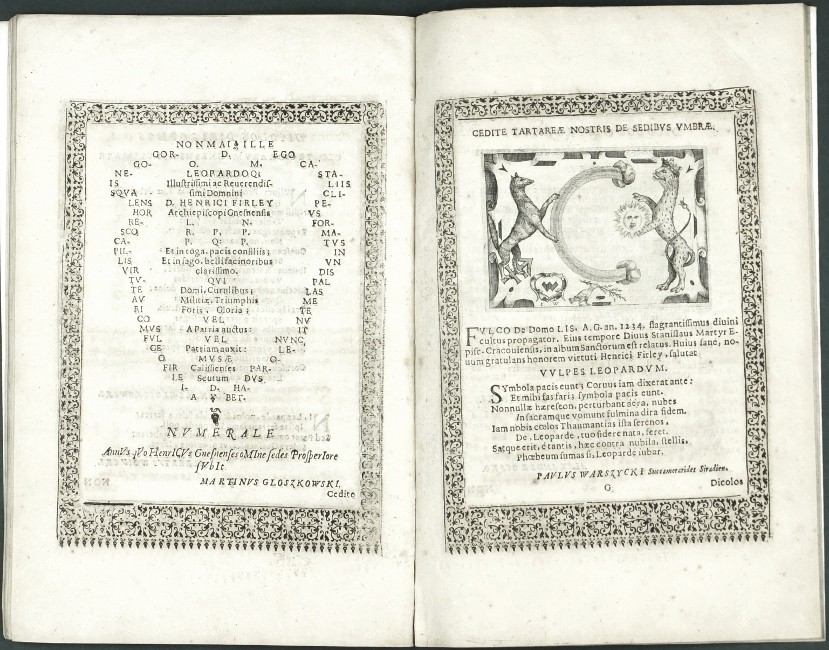 NON MAI ILLE
GOR- D. EGO
GO- O. M. CA-
NE- LEOPARDOQ; STA-
IS Illustrissimi ac Reuerendis- LIIS
SQVA simi Domnini CLI-
LENS D. HENRICI FIRLEY PE-
HOR Archiepiscopi Gnesnensis VS
RE- L. N. FOR-
SCO R. P. P. MA-
CA- P. Q; P. TVS
PIL- Et in toga, pacis consiliis; IN
LIS Et in sago, belli facinoribus VN
VIR clarissimo, DIS
TV- QVI PAL
TE Domi, Curulibus; LAS
AV Militiæ, Triumphis ME
RI Foris, Gloria; TE
CO VEL NV
MVS A Patria auctus; IT
FVL VEL NVNC,
GE Patriam auxit: LE-
O MVSÆ O-
FIR Calissienses PAR-
LE Scutum DVS
I- D. HA-
A BET.
NVMERALE
AnnVs qVo HenrICVs Gnesnenses oMIne sedes ProsperIore
sVbIt.
MARTINVS GLOSZKOWSKI.
Cedite
CEDITE TARTAREÆ NOSTRIS DE SEDIBVS VMBRÆ.
FVLCO De Domo LIS, A.G. an. 1234, flagrantissimus diuini
cultus propagator. Eius tempore Diuus Stanislaus Martyr E-
pisc. Cracouiensis, in album Sanctorum est relatus. Huius sanè, no-
uum gratulans honorem virtuti Henrici Firley, salutat
VVLPES LEOPARDVM.
SYmbola pacis eunt; Coruus iam dixerat ante:
Et mihi fas fari; symbola pacis eunt.
Nonnullæ hæreseon, perturbant aëra, nubes
In sacramque vomunt fulmina dira fidem.
Iam nobis cœlos Thaumantias ista serenos,
De, Leoparde, tuo sidere nata, feret.
Satque erit, è tantis, hæc contra nubila, stellis,
Phœbeum sumas si, Leoparde iubar.
PAVLVS WARSZYCKI Succamerarides Siradien.
G
Dicolos